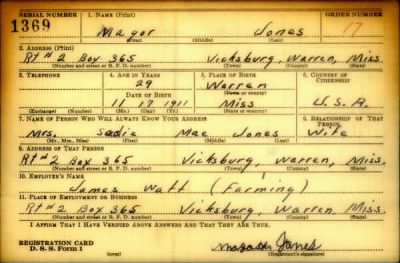 SERIAL NUMBER 1. NAME (Print) ORDER NUMBER
1369 Mayor Jones 17
(First) (Middle) (Last)
2. ADDRESS (Print)
Rt # 2 Box 365 Vicksburg, Warren, Miss.
(Number and street or R. F. D. number) (Town) (County) (State)
3. TELEPHONE 4. AGE IN YEARS 5. PLACE OF BIRTH 6. COUNTRY OF CITIZENSHIP
29 Warren
(Town or county)
DATE OF BIRTH
11 17 1911 Miss U.S.A.
(Exchange) (Number) (Mo.) (Day) (Yr.) (State or country)
7. NAME OF PERSON WHO WILL ALWAYS KNOW YOUR ADDRESS 8. RELATIONSHIP OF THAT PERSON
Mrs. Sadie Mae Jones Wife
(Mr., Mrs., Miss) (First) (Middle) (Last)
9. ADDRESS OF THAT PERSON
Rt # 2 Box 365 Vicksburg, Warren, Miss.
(Number and street or R. F. D. number) (Town) (County) (State)
10. EMPLOYER'S NAME
James Watt (Farming)
11. PLACE OF EMPLOYMENT OR BUSINESS
Rt # 2 Box 365 Vicksburg, Warren, Miss.
(Number and street or R. F. D. number) (Town) (County) (State)
I AFFIRM THAT I HAVE VERIFIED ABOVE ANSWERS AND THAT THEY ARE TRUE.
REGISTRATION CARD
D. S. S. Form 1 (over) Jones
(Registrant's signature)